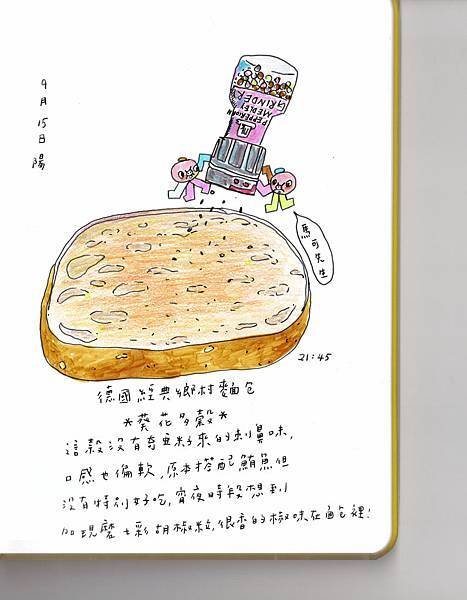 9月15日 陽
PEPPERMAN
MEDLEY
GRINDER
馬可先生
21:45
德國經典鄉村麵包
*葵花多穀*
這穀沒有奇亞籽來的刺鼻味,
口感也偏軟,原本搭配鮪魚但
沒有特別好吃,宵夜時段想到
加現磨七彩胡椒粒,很香的椒味在麵包裡!